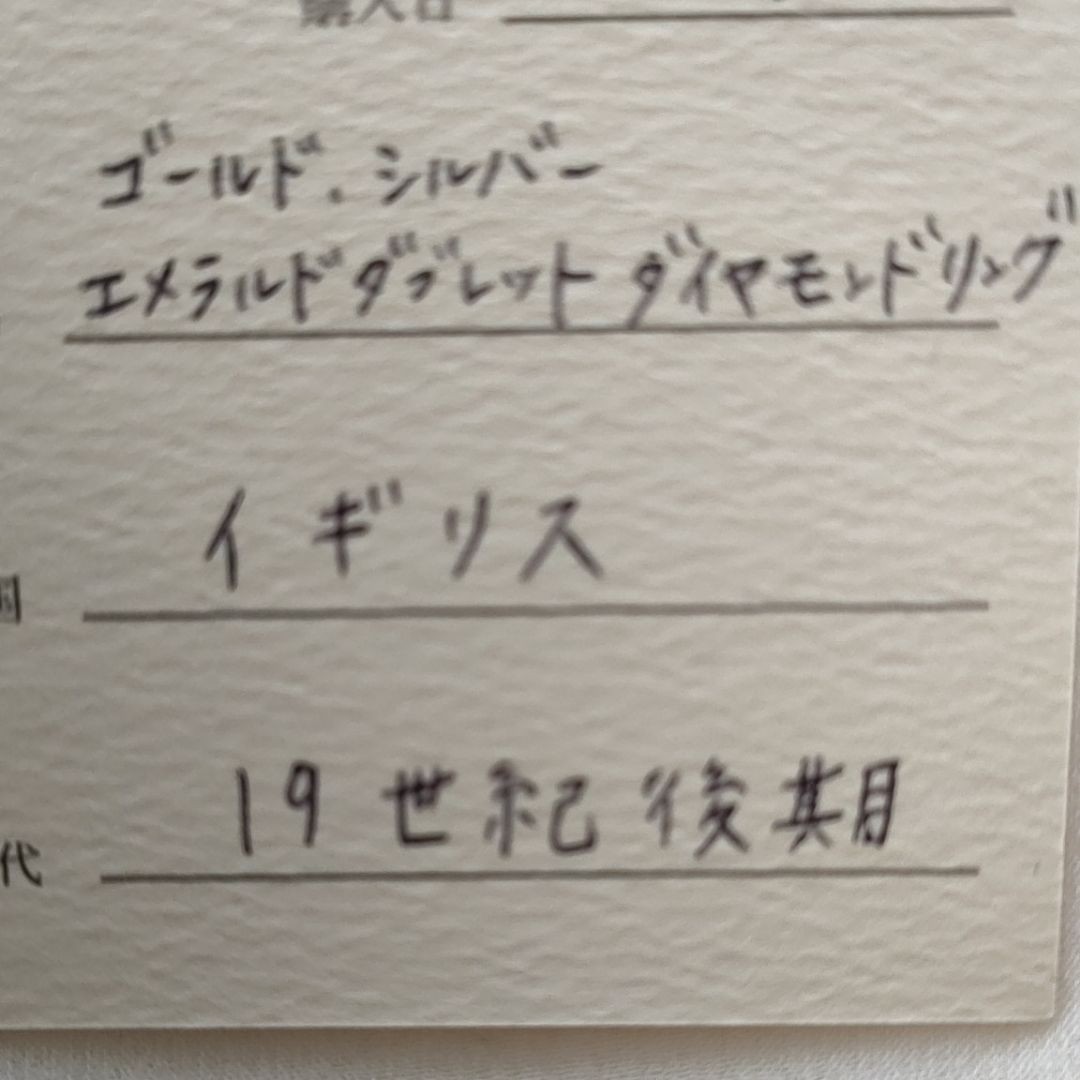 購入日
ゴールド.シルバー
エメラルドダブレット ダイヤモンドリング
イギリス
国
19世紀後期
代